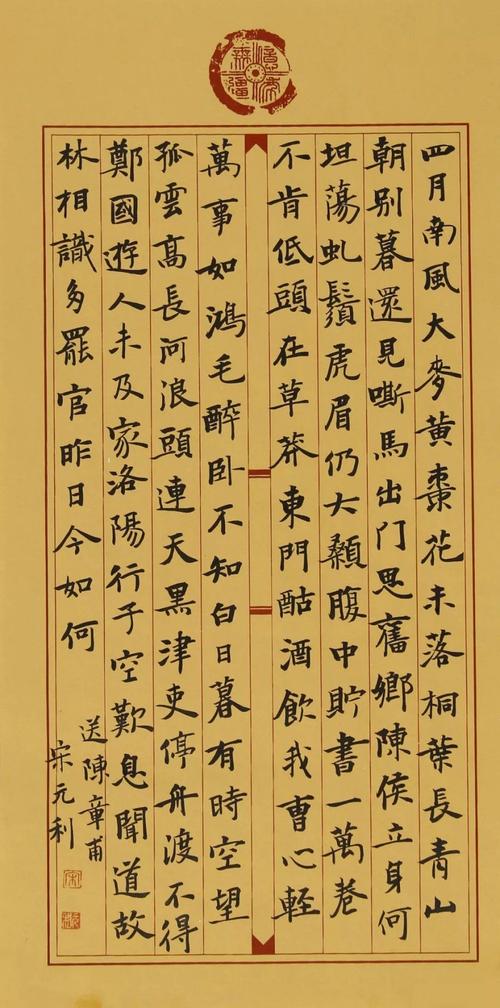 四月南風大麥黃棗花未落桐葉長青山
朝別暮還見嘶馬出門思舊鄉陳侯立身何
坦蕩虬鬚虎眉仍大顙腹中貯書一萬卷
不肯低頭在草莽東門酤酒飲我曹心輕
萬事如鴻毛醉卧不知白日暮有時空望
孤雲高長河浪頭連天黑津吏停舟渡不得
鄭國遊人未及家洛陽行子空歎息聞道故
林相識多罷官昨日今如何
送陳章甫
宋元利